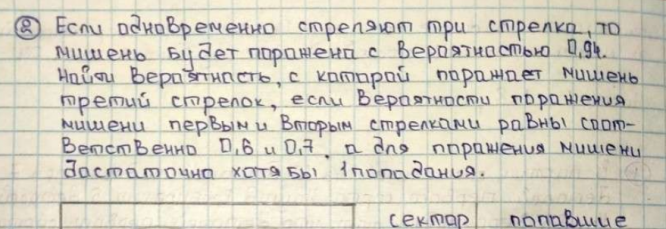 ② Если одновременно стреляют три стрелка, то
мишень будет поражена с вероятностью 0,94.
Найти вероятность, с которой поражает мишень
третий стрелок, если вероятности поражения
мишени первым и вторым стрелками равны соот-
ветственно 0,6 и 0,7, а для поражения мишени
достаточно хотя бы 1 попадания.
сектор попавшие